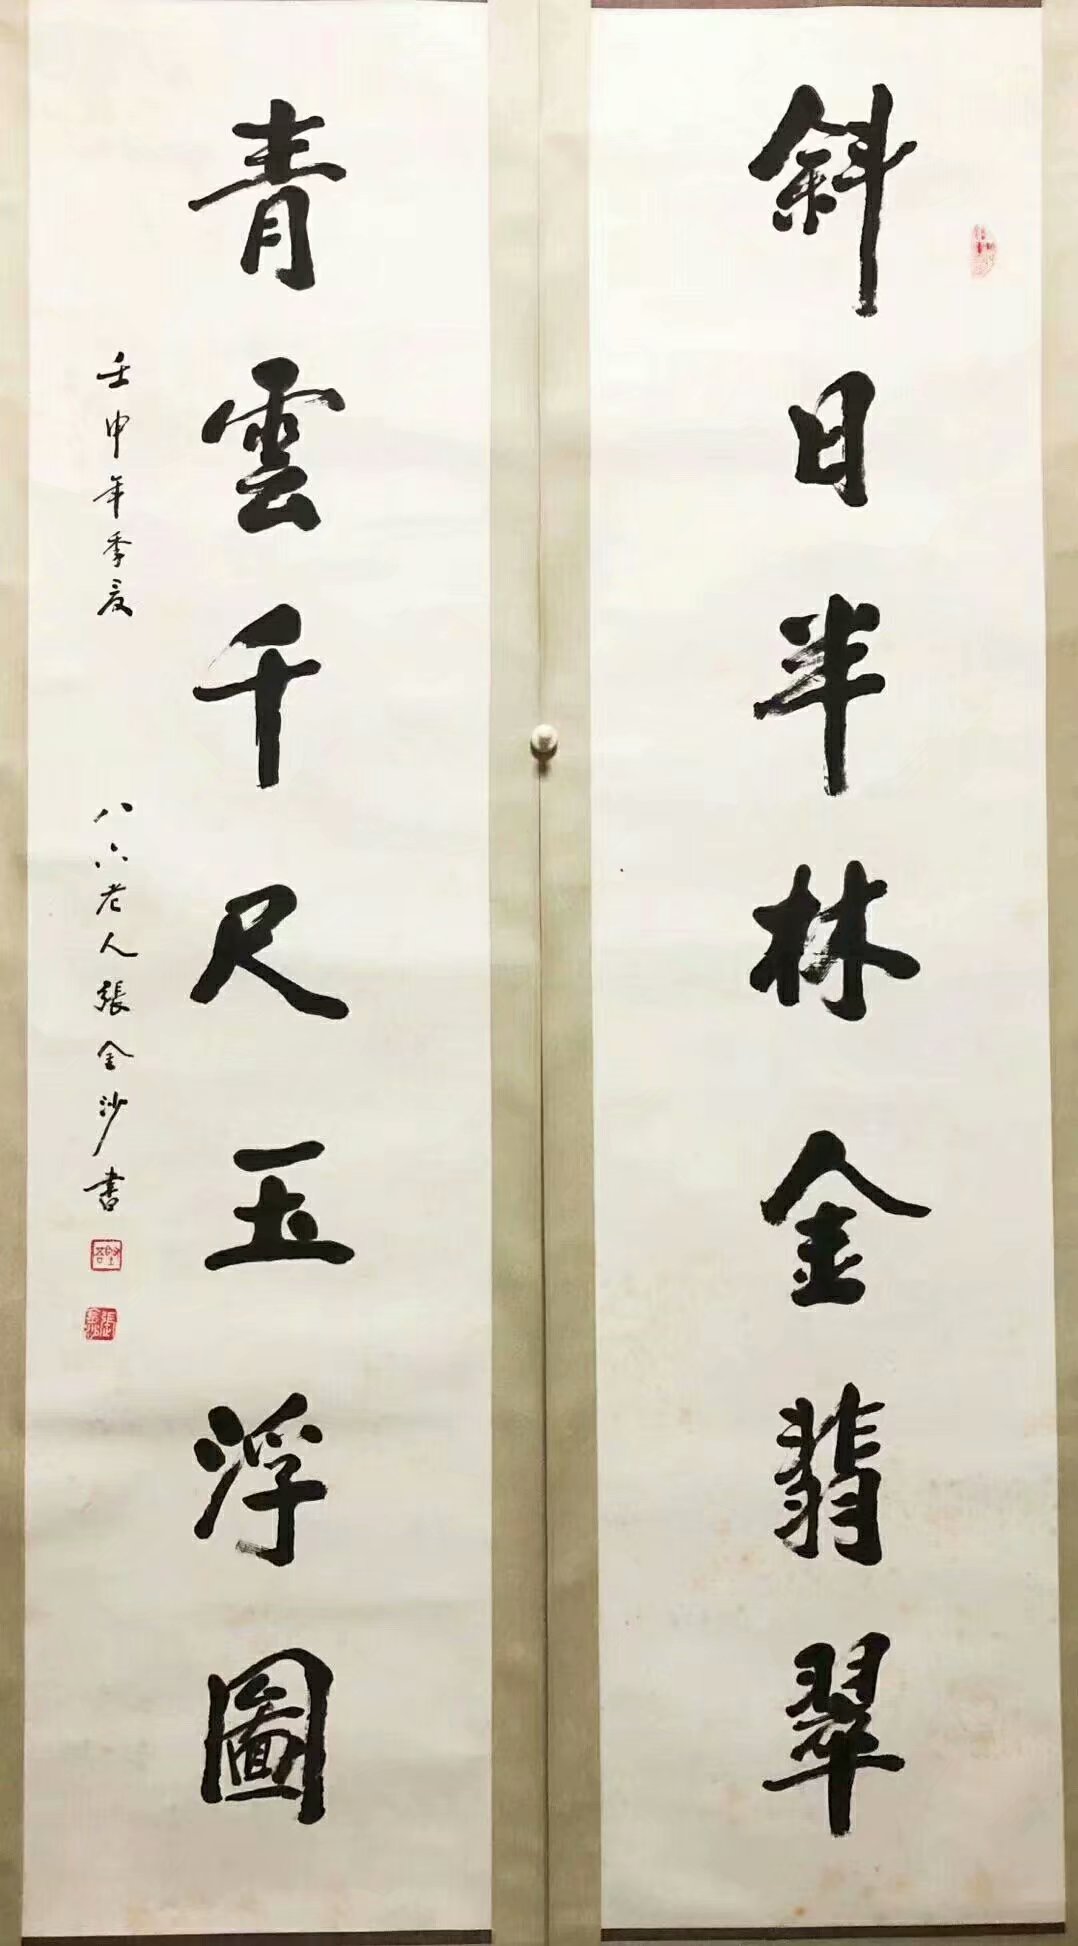 斜日半林金翡翠
青雲千尺玉浮圖
壬申年季夏
八六老人張金沙書